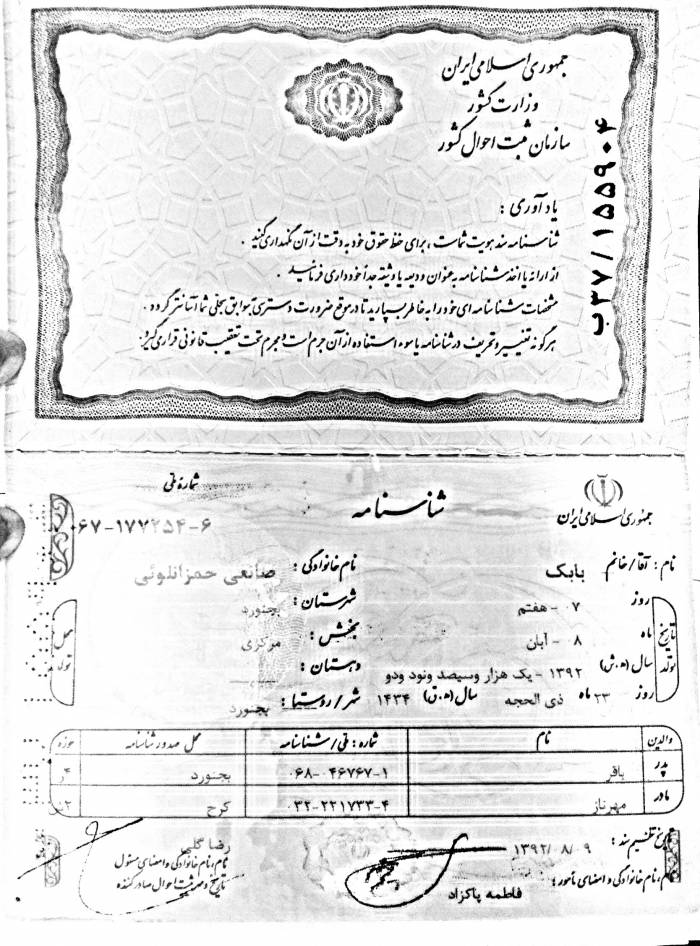 جمهوری اسلامی ایران
وزارت کشور
سازمان ثبت احوال کشور
ب۳۷/۱۵۵۹۰۴
یادآوری :
شناسنامه سند هویت شماست ، برای حفظ حقوق خود به دقت از آن نگهداری کنید .
از ارائه یا اخذ شناسنامه به عنوان ودیعه یا وثیقه جداً خودداری فرمائید .
مشخصات شناسنامه ای خود را به خاطر بسپارید تا در موقع ضرورت دسترسی به سوابق سجلی شما آسانتر گردد .
هرگونه تغییر و تحریف در شناسنامه یا سوء استفاده از آن جرم است و مجرم تحت تعقیب قانونی قرار می گیرد .
جمهوری اسلامی ایران
شناسنامه
شماره ملی
۰۶۷-۱۷۷۲۵۴-۶
نام : آقا / خانم بابک
نام خانوادگی : صانعی حمزانلوئی
تاریخ تولد
روز ۰۷ - هفتم
ماه ۰۸ - آبان
سال (ه.ش) ۱۳۹۲ - یک هزار وسیصد ونود ودو
روز ۲۳ ماه ذی الحجه سال (ه.ق) ۱۴۳۴
محل تولد
شهرستان : بجنورد
بخش : مرکزی
دهستان :
شهر / روستا : بجنورد
والدین نام شماره : ملی / شناسنامه محل صدور شناسنامه حوزه
پدر باقر ۰۶۸-۰۴۶۷۶۷-۱ بجنورد
مادر مهرناز ۰۳۲-۲۲۱۷۳۳-۴ کرج
تاریخ تنظیم سند : ۱۳۹۲/۰۸/۰۹
نام، نام خانوادگی و امضای مأمور :
فاطمه پاکزاد
رضا گلی
نام، نام خانوادگی و امضای مسئول
تاریخ و مهر ثبت احوال صادر کننده